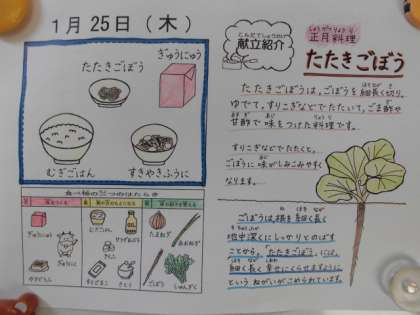 1月25日(木)
ぎゅうにゅう
たたきごぼう
むぎごはん
すきやきふうに
食べ物の三つのはたらき
ぎゅうにゅう
ぎゅうにく
むぎごはん
さとう
たまねぎ
ごぼう
しゅんぎく
献立紹介
しょうがつりょうり
正月料理
たたきごぼう
たたきごぼうは、ごぼうを細長く切り、
ゆでて、すりこぎなどでたたいて、ごま酢や
甘酢で味をつけた料理です。
すりこぎなどでたたくと、
ごぼうに味がしみこみやすく
なります。
ごぼうは根を細く長く
地中深くにしっかりとのばす
ことから、「たたきごぼう」には、
細く長く幸せにくらせますように
というねがいがこめられています。